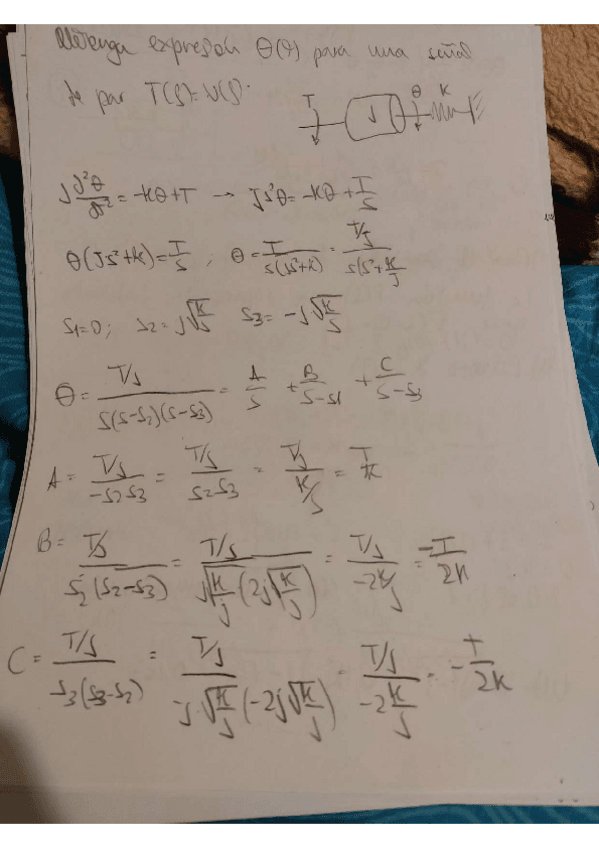 Obtenga expresión θ(t) para una señal
de par T(s)=U(s).
T J θ K
J d²θ/dt² = -Kθ+T → Js²θ = -Kθ + T/s
θ(Js²+K) = T/s ; θ = T/(s(Js²+K)) = (T/J)/(s(s²+K/J
s1=0; s2 = j√(K/J) s3 = -j√(K/J)
θ = (T/J)/(s(s-s2)(s-s3)) = A/s + B/(s-s1) + C/(s-s3)
A = (T/J)/(-s2 s3) = (T/J)/(s2 s3) = (T/J)/(K/J) = T/K
B = (T/J)/(s2(s2-s3)) = (T/J)/(j√(K/J)(2j√(K/J))) = (T/J)/(-2K/J) = -T/2K
C = (T/J)/(s3(s3-s2)) = (T/J)/(-j√(K/J)(-2j√(K/J))) = (T/J)/(-2K/J) = -T/2K